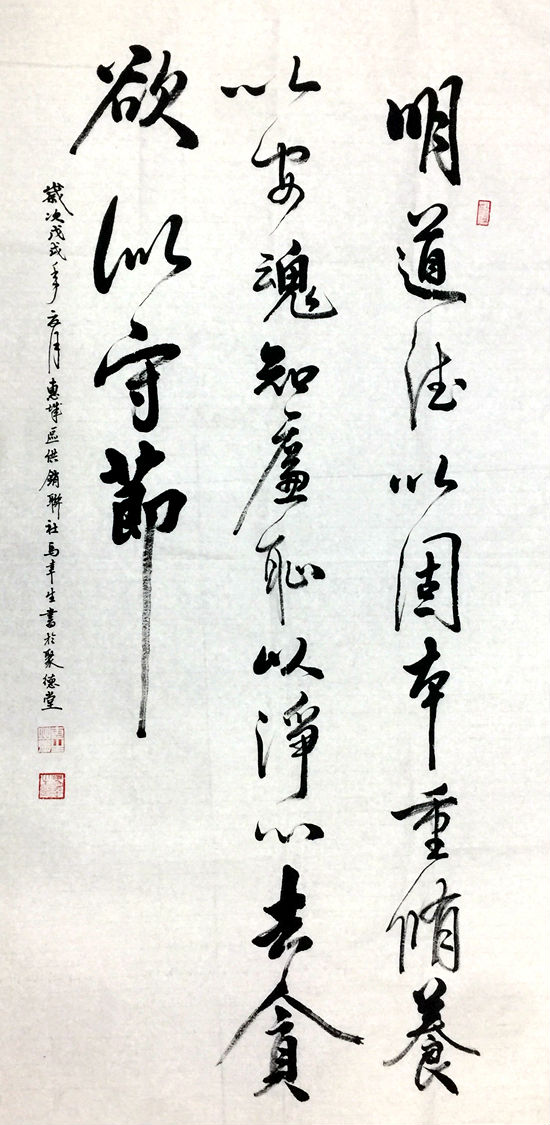 明道德以固本重脩養
以安魂知廉恥以淨心去貪
欲以守節
歲次戊戌年月惠城區供銷聯社馬生書於聚德堂